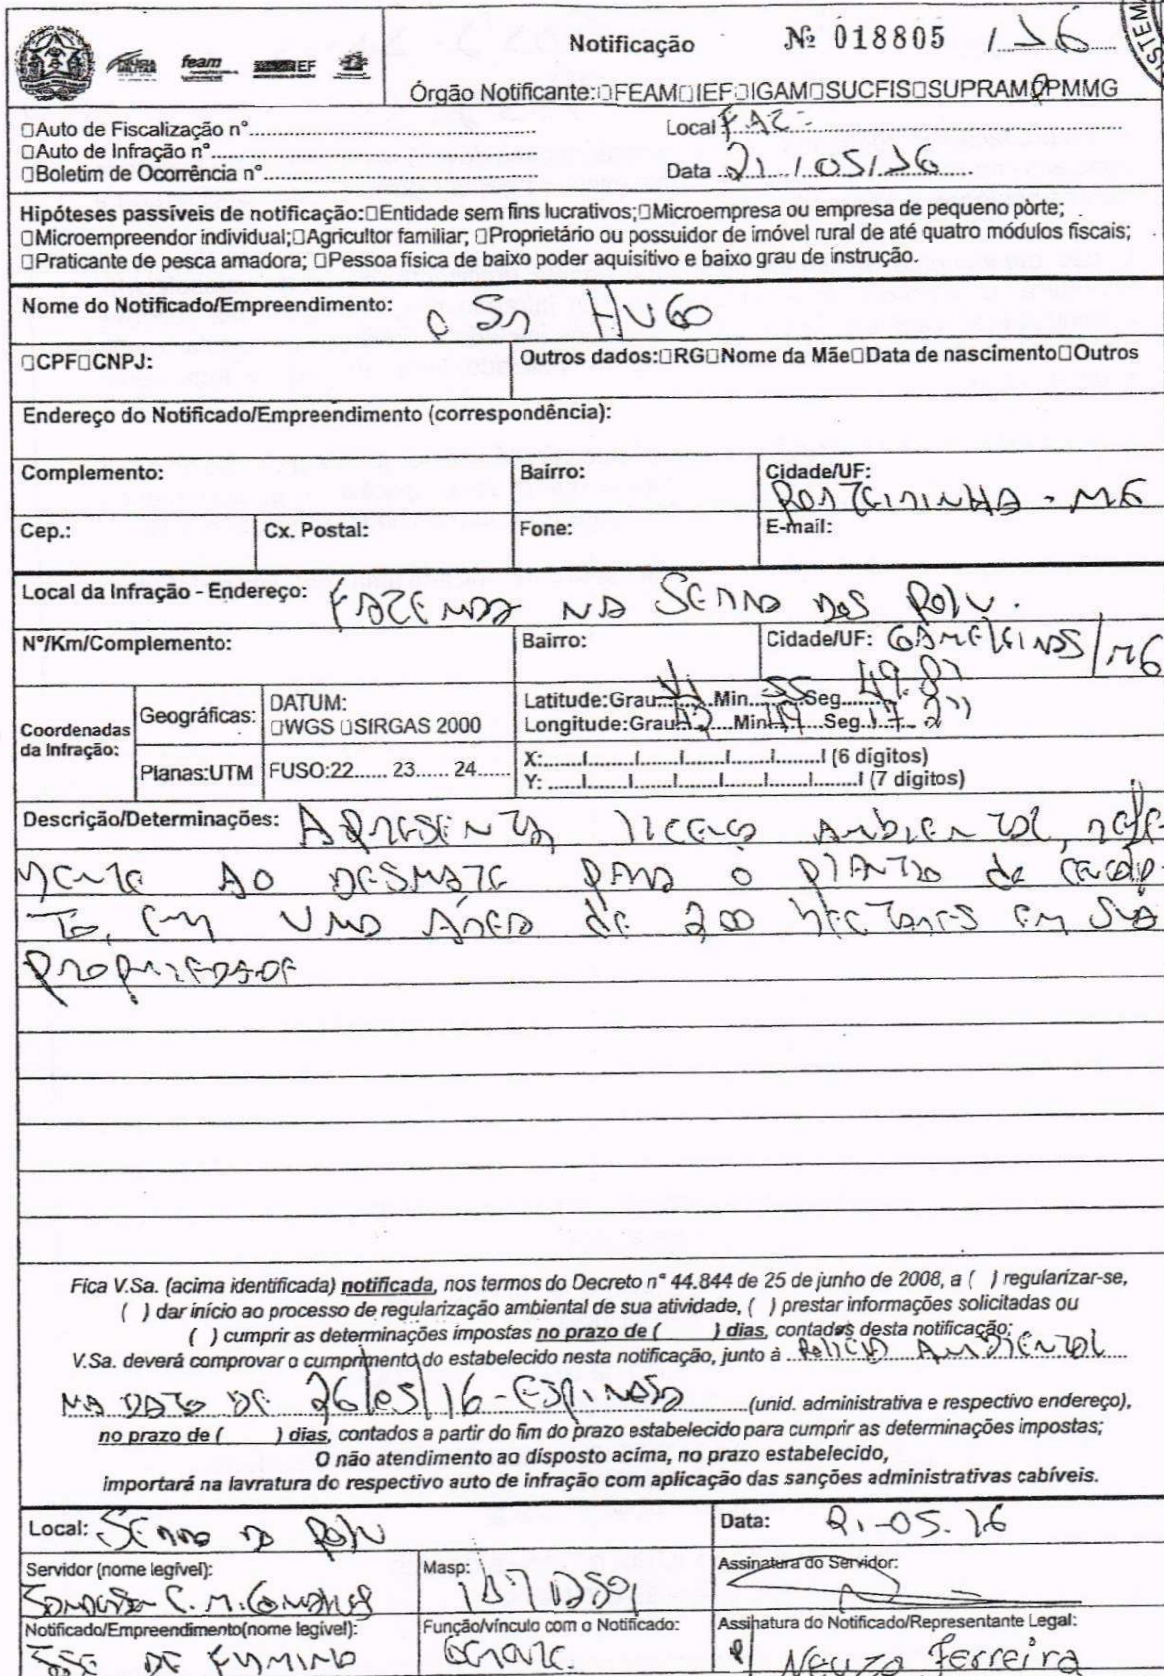 POLÍCIA MILITAR feam IEF
Notificação Nº 018805 / 16
SISTEMA
Órgão Notificante:□FEAM□IEF□IGAM□SUCFIS□SUPRAM□PMMG
□Auto de Fiscalização n°
Local FAZ-
□Auto de Infração n°
□Boletim de Ocorrência n°
Data 21/05/16
Hipóteses passíveis de notificação:□Entidade sem fins lucrativos;□Microempresa ou empresa de pequeno pòrte;
□Microempreendor individual;□Agricultor familiar; □Proprietário ou possuidor de imóvel rural de até quatro módulos fiscais;
□Praticante de pesca amadora; □Pessoa física de baixo poder aquisitivo e baixo grau de instrução.
Nome do Notificado/Empreendimento: O Sr HUGO
□CPF□CNPJ:
Outros dados:□RG□Nome da Mãe□Data de nascimento□Outros
Endereço do Notificado/Empreendimento (correspondência):
Complemento: Bairro: Cidade/UF:
PORTEIRINHA - MG
Cep.: Cx. Postal: Fone: E-mail:
Local da Infração - Endereço: FAZENDA NA SERRA DOS
N°/Km/Complemento: Bairro: Cidade/UF: GAMELEIRAS/MG
Coordenadas da Infração:
Geográficas: DATUM:
□WGS □SIRGAS 2000
Latitude:Grau Min. 55 Seg.
Longitude:Grau Min Seg
Planas:UTM FUSO:22...... 23...... 24......
X: (6 dígitos)
Y: (7 dígitos)
Descrição/Determinações: APRESENTA licença Ambiental, refe-
rente AO DESMATE PARA o PLANTIO de eucalip-
To, em UMA ÁREA de 200 hectares em SUA
PROPRIEDADE
Fica V.Sa. (acima identificada) notificada, nos termos do Decreto n° 44.844 de 25 de junho de 2008, a ( ) regularizar-se,
( ) dar início ao processo de regularização ambiental de sua atividade, ( ) prestar informações solicitadas ou
( ) cumprir as determinações impostas no prazo de ( ) dias, contados desta notificação;
V.Sa. deverá comprovar o cumprimento do estabelecido nesta notificação, junto à POLICIA AMBIENTAL
NA DATA DE 26/05/16 - ESPINOSA (unid. administrativa e respectivo endereço),
no prazo de ( ) dias, contados a partir do fim do prazo estabelecido para cumprir as determinações impostas;
O não atendimento ao disposto acima, no prazo estabelecido,
importará na lavratura do respectivo auto de infração com aplicação das sanções administrativas cabíveis.
Local: SERRA DO Data: 21-05.16
Servidor (nome legível): Masp: Assinatura do Servidor:
C. M.
Notificado/Empreendimento(nome legível): Função/vínculo com o Notificado: Assinatura do Notificado/Representante Legal:
JOSE DE gerente. Neuza Ferreira